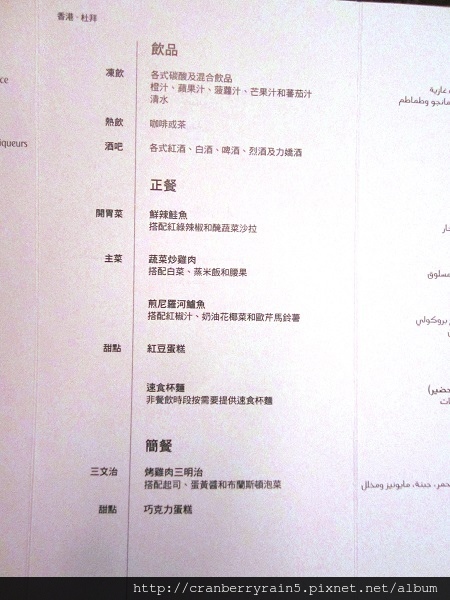 香港 · 杜拜
飲品
凍飲 各式碳酸及混合飲品
橙汁、蘋果汁、菠蘿汁、芒果汁和蕃茄汁
清水
熱飲 咖啡或茶
酒吧 各式紅酒、白酒、啤酒、烈酒及力嬌酒
正餐
開胃菜 鮮辣鮭魚
搭配紅綠辣椒和醃蔬菜沙拉
主菜 蔬菜炒雞肉
搭配白菜、蒸米飯和腰果
煎尼羅河鱸魚
搭配紅椒汁、奶油花椰菜和歐芹馬鈴薯
甜點 紅豆蛋糕
速食杯麵
非餐飲時段按需要提供速食杯麵
簡餐
三文治 烤雞肉三明治
搭配起司、蛋黃醬和布蘭斯頓泡菜
甜點 巧克力蛋糕
iqueurs
مانجو وطماطم
مسلوق
بروكولي
حمر، جبنة، مايونيز ومخلل
http://cranberryrain5.pixnet.net/album